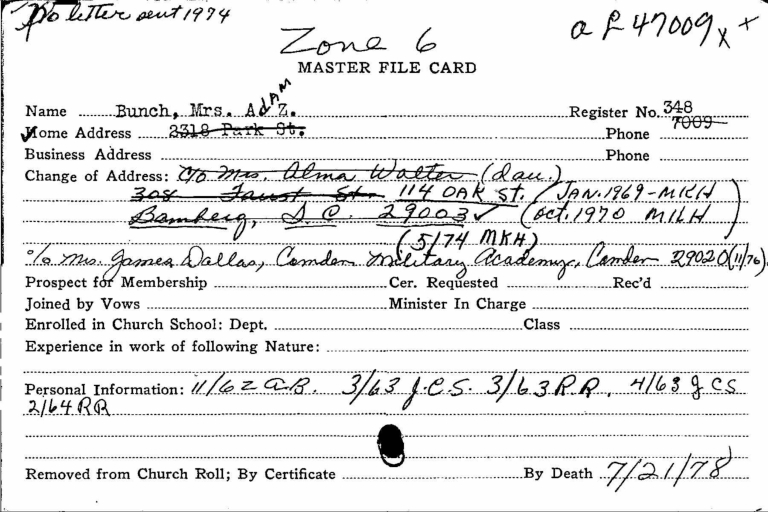 No letter sent 1974
a L 47009 x x
Zone 6
MASTER FILE CARD
Name Bunch, Mrs. Adam Z. Register No. 348 7009
Home Address 2318 Park St. Phone
Business Address Phone
Change of Address: c/o Mrs. Alma Walter (dau.)
308 Faust St. 114 OAK St. (JAN. 1969-MKH
Bamberg, S.C. 29003 ✓ (Oct. 1970 MKH)
(5/74 MKH)
c/o Mrs. James Dallas, Camden Military Academy, Camden 29020 (11/76)
Prospect for Membership Cer. Requested Rec'd
Joined by Vows Minister In Charge
Enrolled in Church School: Dept. Class
Experience in work of following Nature:
Personal Information: 11/62 A.B. 3/63 J.C.S. 3/63 R.R. 4/63 J CS
2/64 RR
Removed from Church Roll; By Certificate By Death 7/21/78